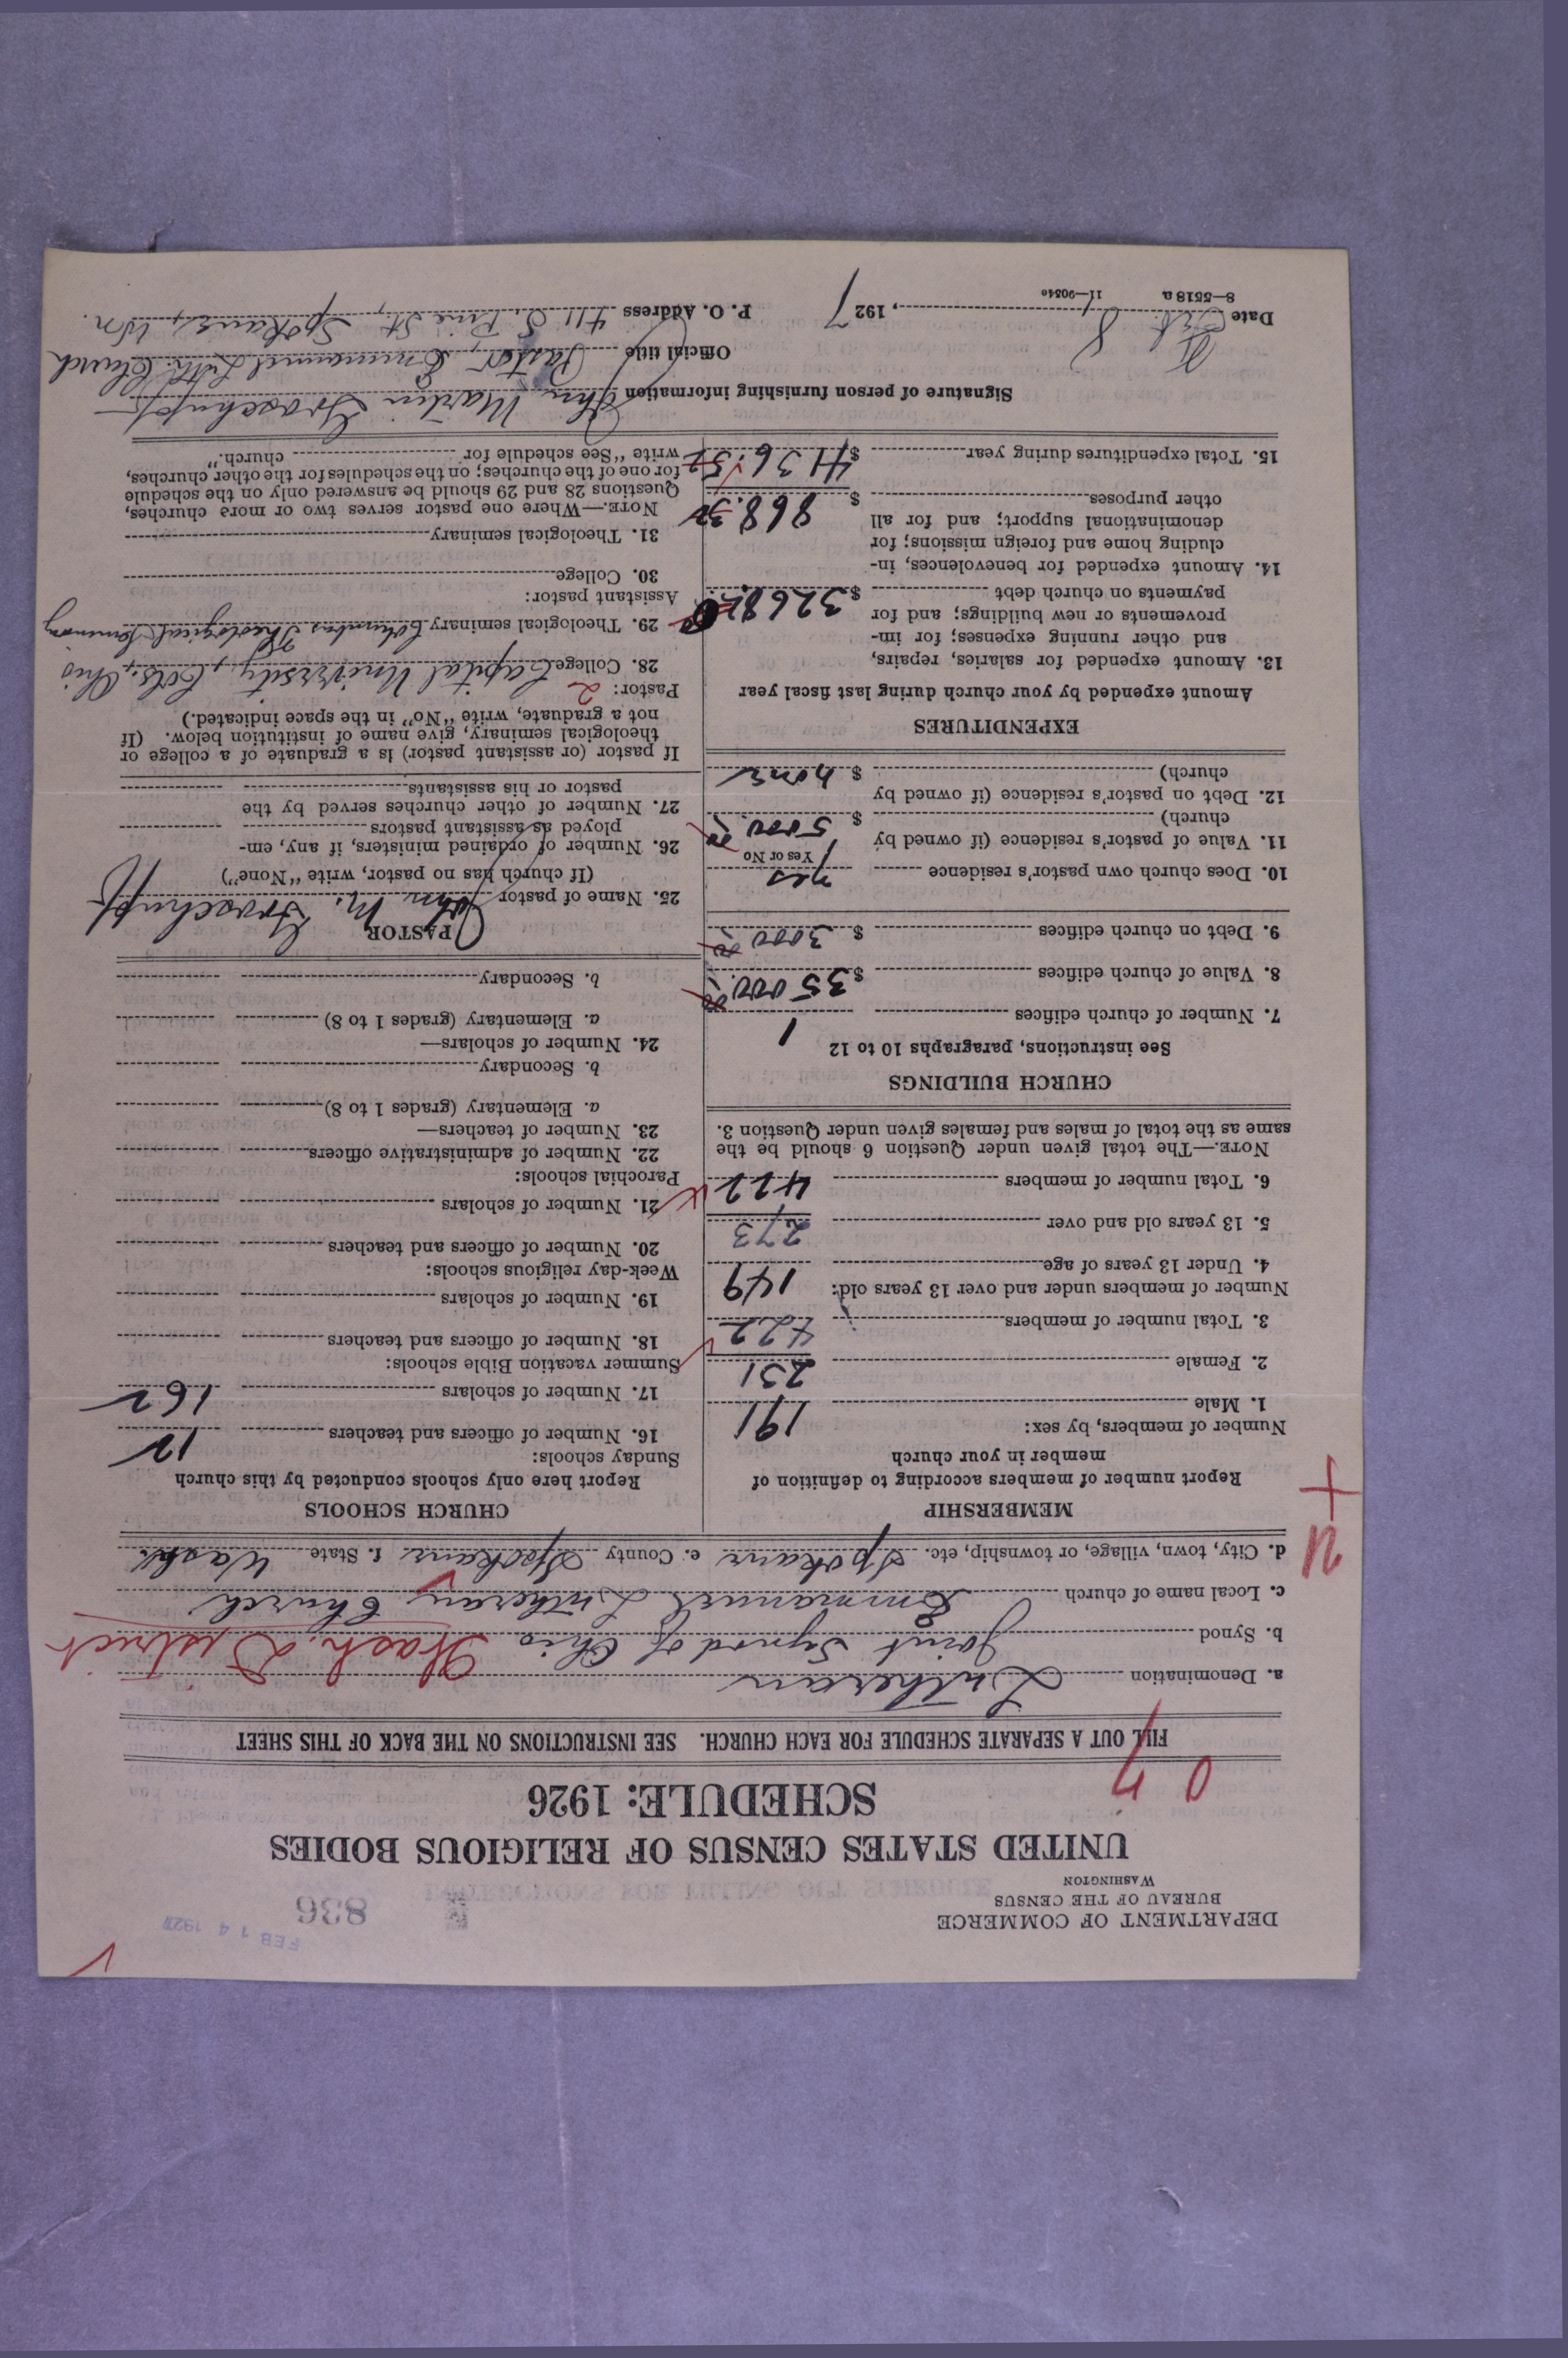 DEPARTMENT OF COMMERCE
BUREAU OF THE CENSUS
WASHINGTON
FEB 14 1927
836
UNITED STATES CENSUS OF RELIGIOUS BODIES
SCHEDULE: 1926
FILL OUT A SEPARATE SCHEDULE FOR EACH CHURCH. SEE INSTRUCTIONS ON THE BACK OF THIS SHEET
a. Denomination Lutheran
b. Synod Joint Synod of Ohio Wash. District
c. Local name of church Emmanuel Lutheran Church
d. City, town, village, or township, etc. Spokane e. County Spokane f. State Wash.
MEMBERSHIP
Report number of members according to definition of
member in your church
Number of members, by sex:
1. Male 191
2. Female 231
3. Total number of members 422
Number of members under and over 13 years old:
4. Under 13 years of age 149
5. 13 years old and over 273
6. Total number of members 422
NOTE.—The total given under Question 6 should be the
same as the total of males and females given under Question 3.
CHURCH BUILDINGS
See instructions, paragraphs 10 to 12
7. Number of church edifices 1
8. Value of church edifices $ 35000.00
9. Debt on church edifices $ 3000.00
10. Does church own pastor's residence yes
Yes or No
11. Value of pastor's residence (if owned by
church) $ 5000.00
12. Debt on pastor's residence (if owned by
church) $ none
EXPENDITURES
Amount expended by your church during last fiscal year
13. Amount expended for salaries, repairs,
and other running expenses; for im-
provements or new buildings; and for
payments on church debt $ 3268.
14. Amount expended for benevolences, in-
cluding home and foreign missions; for
denominational support; and for all
other purposes $ 868.30
15. Total expenditures during year $ 4136.52
CHURCH SCHOOLS
Report here only schools conducted by this church
Sunday schools:
16. Number of officers and teachers 12
17. Number of scholars 162
Summer vacation Bible schools:
18. Number of officers and teachers
19. Number of scholars
Week-day religious schools:
20. Number of officers and teachers
21. Number of scholars
Parochial schools:
22. Number of administrative officers
23. Number of teachers—
a. Elementary (grades 1 to 8)
b. Secondary
24. Number of scholars—
a. Elementary (grades 1 to 8)
b. Secondary
PASTOR
25. Name of pastor John M. Groschupf
(If church has no pastor, write "None")
26. Number of ordained ministers, if any, em-
ployed as assistant pastors
27. Number of other churches served by the
pastor or his assistants
If pastor (or assistant pastor) is a graduate of a college or
theological seminary, give name of institution below. (If
not a graduate, write "No" in the space indicated.)
Pastor: 2
28. College Capital University, Cols., Ohio
29. Theological seminary Columbus Theological Seminary
Assistant pastor:
30. College
31. Theological seminary
NOTE.—Where one pastor serves two or more churches,
Questions 28 and 29 should be answered only on the schedule
for one of the churches; on the schedules for the other churches,
write "See schedule for church."
Signature of person furnishing information John Martin Groschupf
Official title Pastor, Emmanuel Luth. Church
Date Feb. 8, 1927 P. O. Address 411 S. Pine St., Spokane, Wn.
8—5518a 11—9034c